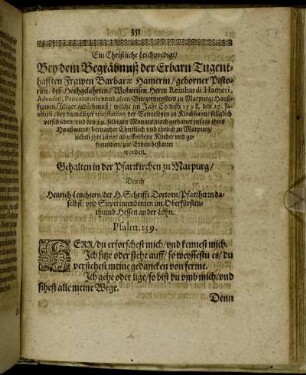 351
Ein Christliche Leichpredigt/
Bey dem Begräbnuß der Erbarn Tugent-
hafften Frawen Barbarae Hamerin/ geborner Pisto-
rin/ deß Hochgelahrten/ Wolweisen Herrn Reinhardi Hameri,
Advocati, Procuratoris und alten Bürgermeisters zu Marpurg/ Hauß-
frawen/ seliger gedächtnuß/ welche im Jahr Christi 1598. den 27.
bey damaliger visitation der zu Kirchhain/ seliglich
verschieden/ und den 29. selbigen Monats
Haußwirts/ hernacher Christlich und ehrlich zu Marpurg/
Kinder und
freunden/ zur Erden bestattet
worden.
Gehalten in der Pfarrkirchen zu Marpurg/
Durch
Henrich Leuchtern/ der H. Schrifft Doctorn/ Pfarrhern da-
selbst/ und Superintendenten im Oberfürsten-
thumb Hessen an der Löhn.
Psalm. 139.
HERR/ du erforschest mich/ vnd kennest mich.
Ich sitze oder stehe auff/ so weyssestu es/ du
verstehest meine gedancken von ferne.
Ich gehe oder lige/ so bist du vmb mich/ vnd
sihest alle meine Wege.
Denn